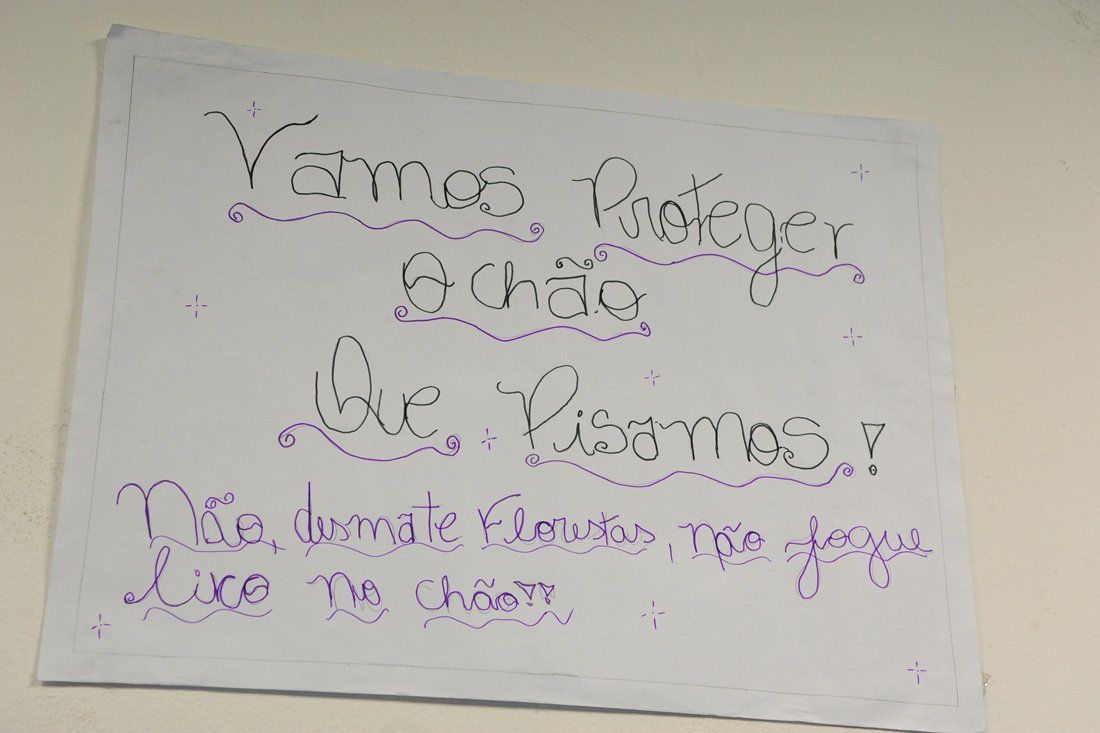 Vamos Proteger
O chão
Que Pisamos!
Não, desmate Florestas, não jogue
lixo no chão!!